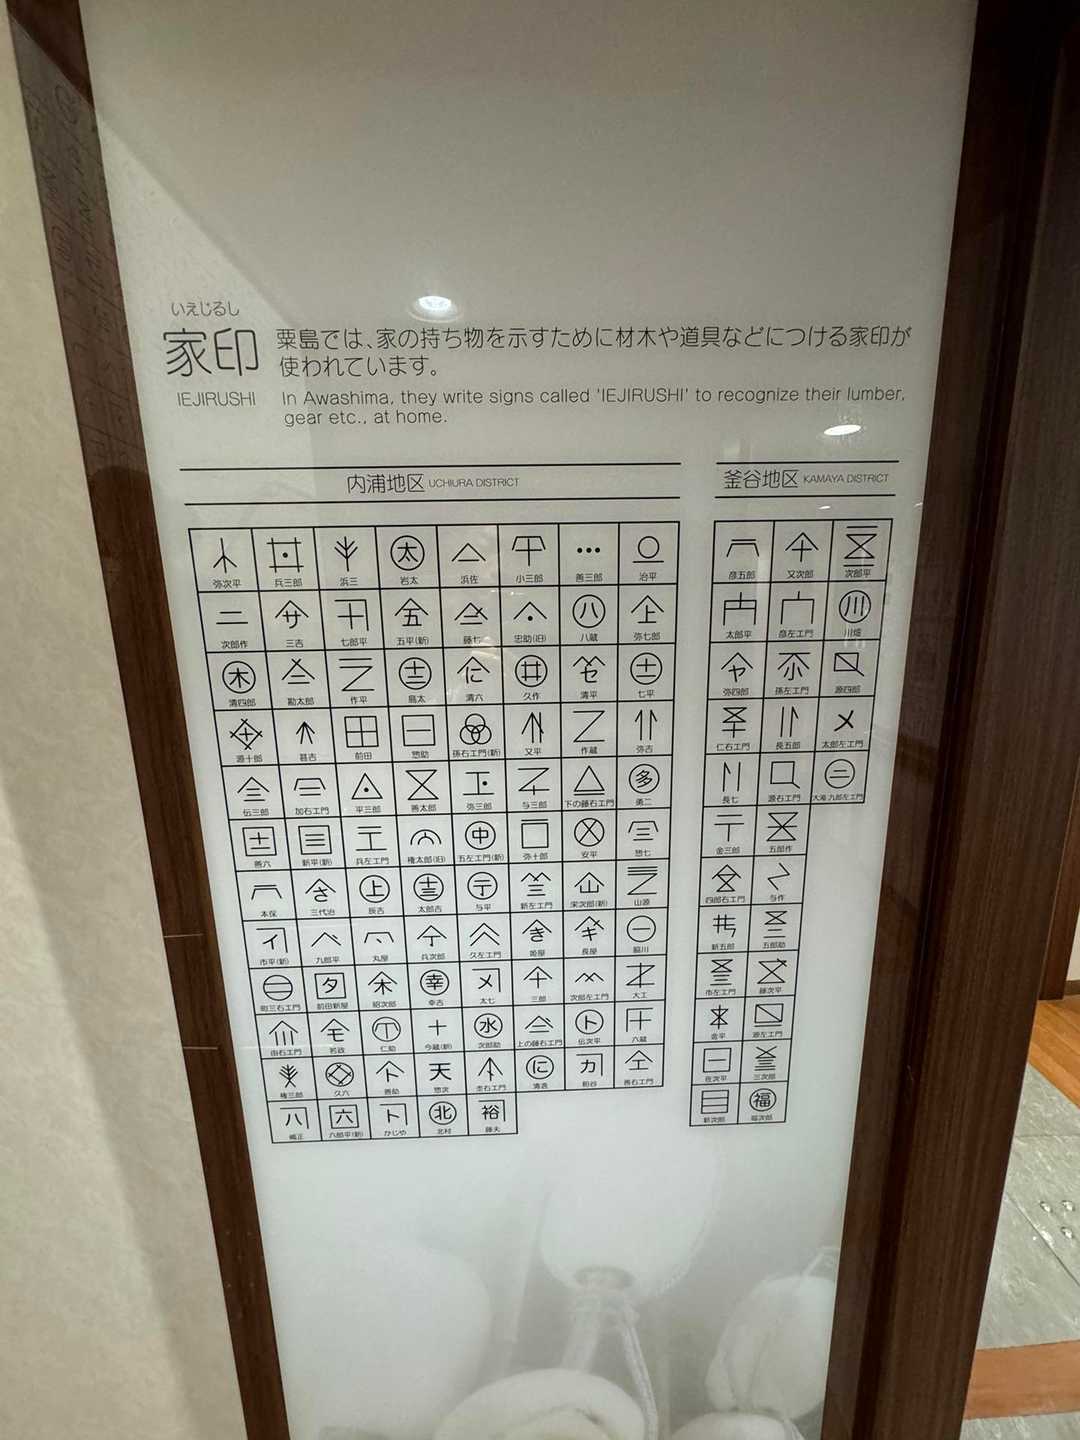 いえじるし
家印
IEJIRUSHI
粟島では、家の持ち物を示すために材木や道具などにつける家印が
使われています。
In Awashima, they write signs called 'IEJIRUSHI' to recognize their lumber,
gear etc., at home.
内浦地区 UCHIURA DISTRICT
太
弥次平 兵三郎 浜三 岩太 浜佐 小三郎 善三郎 治平
二 サ 五 八 上
次郎作 三吉 七郎平 五平(新) 藤七 忠助(旧) 八蔵 弥七郎
木 に 井 セ
清四郎 勘太郎 作平 島太 清六 久作 清平 七平
源十郎 甚吉 前田 惣助 孫右エ門(新) 又平 作蔵 弥吉
多
伝三郎 加右エ門 平三郎 善太郎 弥三郎 与三郎 下の藤右エ門 勇二
中
善六 新平(新) 兵左エ門 権太郎(旧) 五左エ門(新) 弥十郎 安平 惣七
き 上 山
本保 三代治 辰吉 太郎吉 与平 新左エ門 栄次郎(新) 山源
イ き キ 一
市平(新) 九郎平 丸屋 兵次郎 久左エ門 姫屋 長屋 脇川
夕 幸
町三右エ門 前田新屋 昭次郎 幸吉 太七 三郎 次郎左エ門 大工
モ 十 水 ト
由右エ門 若政 仁助 今蔵(新) 次郎助 上の藤右エ門 伝次平 六蔵
天 に カ
権三郎 久六 善助 惣次 杢右エ門 清舎 粕谷 善右エ門
八 六 ト 北 裕
嶋正 六郎平(新) かじや 北村 藤夫
釜谷地区 KAMAYA DISTRICT
彦五郎 又次郎 次郎平
川
太郎平 彦左エ門 川畑
ヤ
弥四郎 孫左エ門 源四郎
仁右エ門 長五郎 太郎左エ門
二
長七 源右エ門 大滝 九郎左エ門
金三郎 五郎作
四郎右エ門 与作
新五郎 五郎助
市左エ門 藤次平
金平 源左エ門
一
佐次平 三次郎
福
新次郎 福次郎